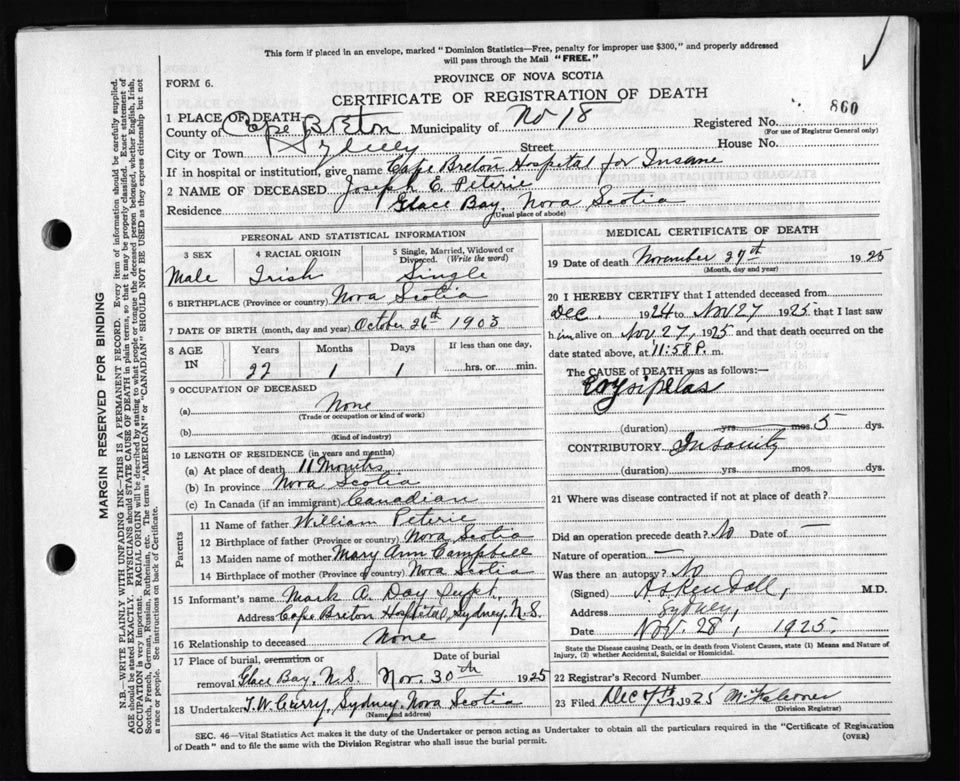 This form if placed in an envelope, marked "Dominion Statistics—Free, penalty for improper use $300," and properly addressed
will pass through the Mail "FREE."
PROVINCE OF NOVA SCOTIA
FORM 6.
CERTIFICATE OF REGISTRATION OF DEATH
860
1 PLACE OF DEATH
County of Cape Breton Municipality of No 18 Registered No.
(For use of Registrar General only)
City or Town Sydney Street House No.
If in hospital or institution, give name Cape Breton Hospital for Insane
2 NAME OF DECEASED Joseph E. Peterie
Residence Glace Bay, Nova Scotia
(Usual place of abode)
PERSONAL AND STATISTICAL INFORMATION
3 SEX
Male
4 RACIAL ORIGIN
Irish
5 Single, Married, Widowed or
Divorced. (Write the word)
Single
6 BIRTHPLACE (Province or country) Nova Scotia
7 DATE OF BIRTH (month, day and year) October 26th 1903
8 AGE
IN
Years Months Days If less than one day,
22 1 1 hrs. or min.
9 OCCUPATION OF DECEASED
(a) None
(Trade or occupation or kind of work)
(b)
(Kind of industry)
10 LENGTH OF RESIDENCE (in years and months)
(a) At place of death 11 Months
(b) In province Nova Scotia
(c) In Canada (if an immigrant) Canadian
Parents
11 Name of father William Peterie
12 Birthplace of father (Province or country) Nova Scotia
13 Maiden name of mother Mary Ann Campbell
14 Birthplace of mother (Province or country) Nova Scotia
15 Informant's name Mark A. Day Supt.
Address Cape Breton Hospital, Sydney, N.S.
16 Relationship to deceased None
17 Place of burial, cremation or
removal Glace Bay, N.S.
Date of burial
Nov. 30th 1925
18 Undertaker T.W. Curry, Sydney, Nova Scotia
(Name and address)
MEDICAL CERTIFICATE OF DEATH
19 Date of death November 27th 1925
(Month, day and year)
20 I HEREBY CERTIFY that I attended deceased from
Dec. 1924 to Nov 27 1925 that I last saw
him alive on Nov. 27, 1925 and that death occurred on the
date stated above, at 11:58 P. m.
The CAUSE OF DEATH was as follows:—
Erysipelas
(duration) yrs. mos. 5 dys.
CONTRIBUTORY Insanity
(duration) yrs. mos. dys.
21 Where was disease contracted if not at place of death?
Did an operation precede death? No Date of —
Nature of operation —
Was there an autopsy? No
(Signed) A S Kendall, M.D.
Address Sydney,
Date Nov. 28, 1925.
State the Disease causing Death, or in death from Violent Causes, state (1) Means and Nature of
Injury, (2) whether Accidental, Suicidal or Homicidal.
22 Registrar's Record Number
23 Filed Dec 7th, 1925
(Division Registrar)
SEC. 46—Vital Statistics Act makes it the duty of the Undertaker or person acting as Undertaker to obtain all the particulars required in the "Certificate of Registration
of Death" and to file the same with the Division Registrar who shall issue the burial permit. (OVER)
MARGIN RESERVED FOR BINDING
N.B.—WRITE PLAINLY WITH UNFADING INK—THIS IS A PERMANENT RECORD. Every item of information should be carefully supplied.
AGE should be stated EXACTLY. PHYSICIANS should STATE CAUSE OF DEATH in plain terms, so that it may be properly classified. Exact statement of
OCCUPATION is very important. RACIAL ORIGIN will be described by stating to what people or tongue the deceased person belonged, whether English, Irish,
Scotch, French, German, Russian, Ruthenian, etc. The terms "AMERICAN" or "CANADIAN" SHOULD NOT BE USED as they express citizenship but not
a race or people. See instructions on back of Certificate.